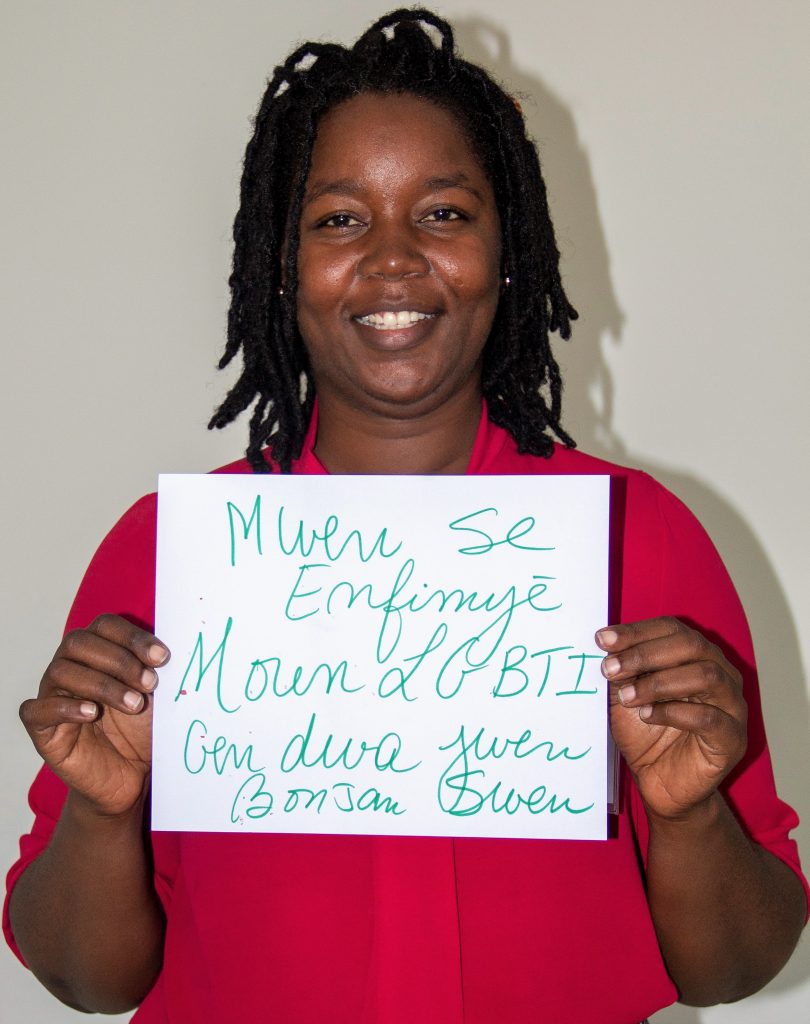 Mwen se
Enfimyē
Moun LGBTI
Gen dwa jwen
Bonjan Swen